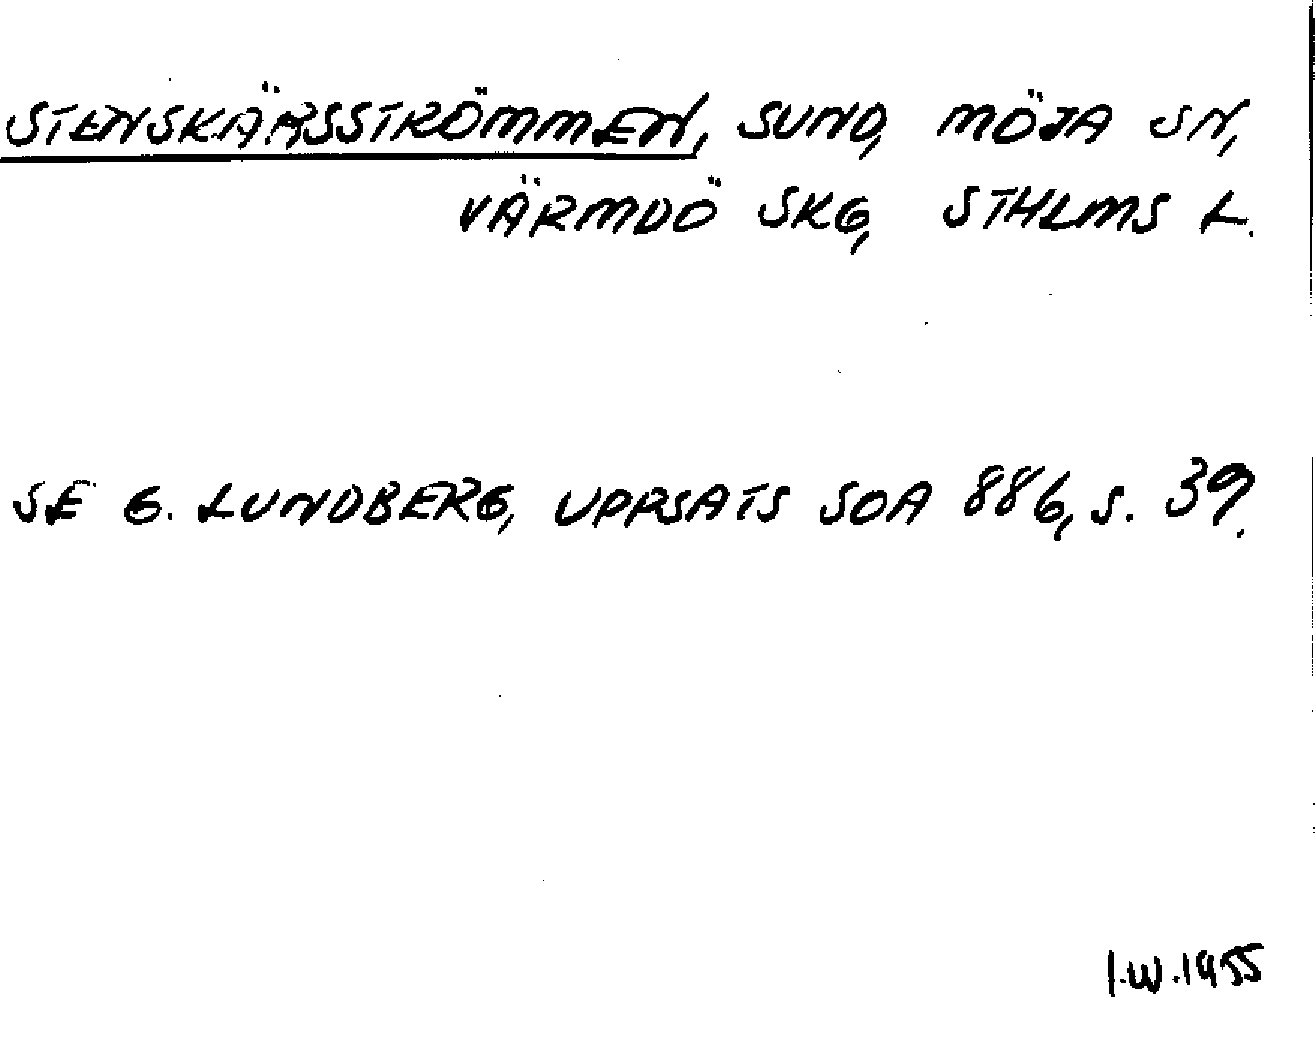 STENSKÄRSSTRÖMMEN, SUND, MÖJA SN,
VÄRMDÖ SKG, STHLMS L.
SE G. LUNDBERG, UPPSATS SOA 886, S. 39.
I.W.1955